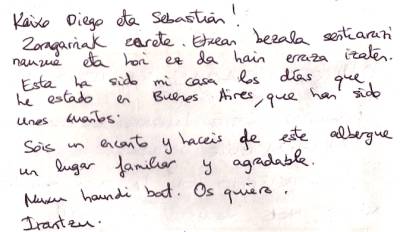 Kaixo Diego eta Sebastián!
Zoragarriak zarete. Etxean bezala sentiarazi
nauzue eta hori ez da hain erraza izaten.
Esta ha sido mi casa los días que
he estado en Buenos Aires, que han sido
unos cuantos.
Sois un encanto y haceis de este albergue
un lugar familiar y agradable.
Muxu haundi bat. Os quiero.
Irantzu.